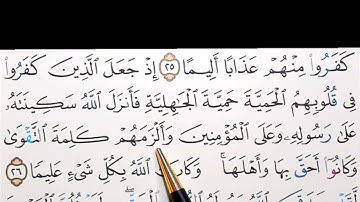 كَفَرُوا۟ مِنْهُمْ عَذَابًا أَلِيمًا ٢٥ إِذْ جَعَلَ ٱلَّذِينَ كَفَرُوا۟
فِى قُلُوبِهِمُ ٱلْحَمِيَّةَ حَمِيَّةَ ٱلْجَـٰهِلِيَّةِ فَأَنزَلَ ٱللَّهُ سَكِينَتَهُۥ
عَلَىٰ رَسُولِهِۦ وَعَلَى ٱلْمُؤْمِنِينَ وَأَلْزَمَهُمْ كَلِمَةَ ٱلتَّقْوَىٰ
وَكَانُوٓا۟ أَحَقَّ بِهَا وَأَهْلَهَا ۚ وَكَانَ ٱللَّهُ بِكُلِّ شَىْءٍ عَلِيمًا ٢٦